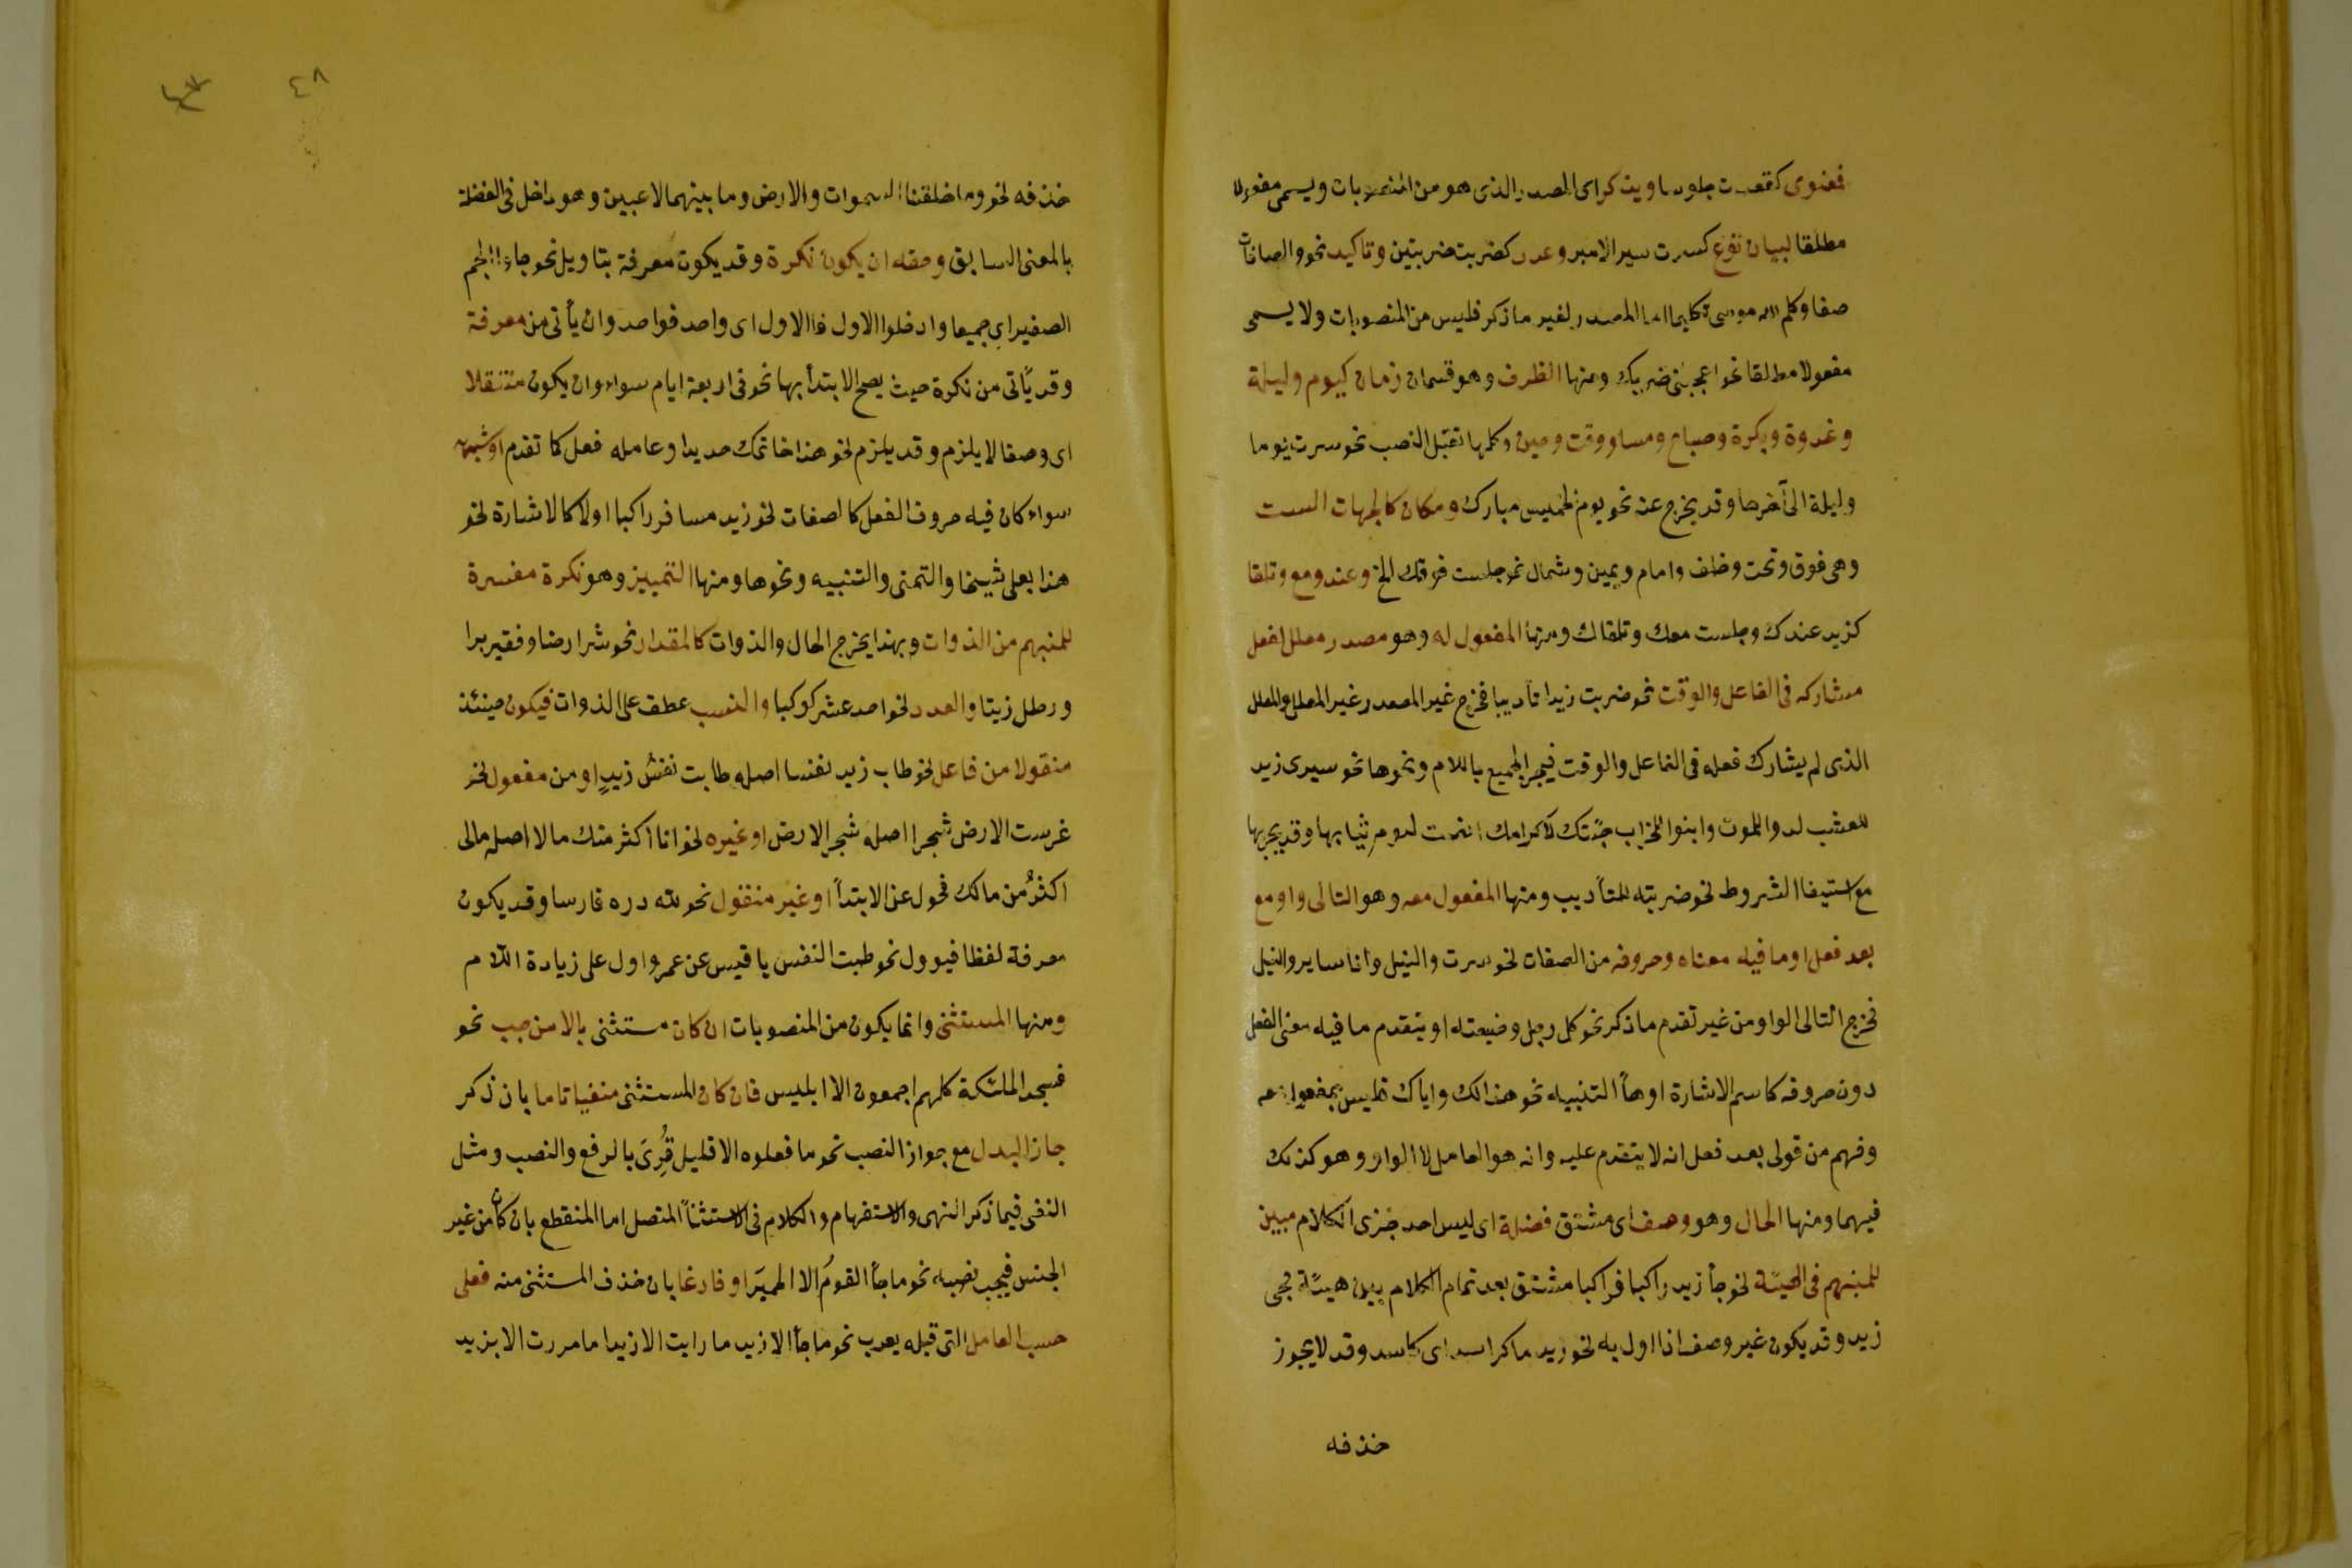 فمعنوى كقعدت جلوسا ويذكر اى المصدر الذى هو من المنصوبات ويسمى مفعولا
مطلقا لبيان نوع كسرت سير الامير وعدد كضربت ضربتين وتاكيد نحو والصافات
صفا وكلم الله موسى تكليما اما المصدر لغير ما ذكر فليس من المنصوبات ولا يسمى
مفعولا مطلقا نحو اعجبنى ضربك ومنها الظرف وهو قسمان زمان كيوم وليلة
وغدوة وبكرة وصباح ومسا ووقت وحين وكلها تقبل النصب نحو سرت يوما
وليلة الى آخرها وقد يخرج عنه نحو يوم الخميس مبارك ومكان كالجهات الست
وهى فوق وتحت وخلف وامام ويمين وشمال نحو جلست فوقك الخ وعند ومع وتلقا
كزيد عندك وجلست معك وتلقاك ومنها المفعول له وهو مصدر معلل لفعل
مشاركه فى الفاعل والوقت نحو ضربت زيدا تأديبا فخرج غير المصدر وغير المعلل والمعلل
الذى لم يشارك فعله فى الفاعل والوقت فيجر الجميع باللام ونحوها نحو سيرى زيد
للعشب لدوا للموت وابنوا للخراب جئتك لاكرامك نضت لنوم ثيابها وقد يجر بها
مع استيفا الشروط نحو ضربته للتأديب ومنها المفعول معه وهو التالى واو مع
بعد فعل او ما فيه معناه وحروفه من الصفات نحو سرت والنيل وانا ساير والنيل
فخرج التالى الواو من غير تقدم ما ذكر نحو كل رجل وضيعته او يتقدم ما فيه معنى الفعل
دون حروفه كاسم الاشارة او هأ التنبيه نحو هذا لك واياك فليس بمفعول معه
وفهم من قولى بعد فعل انه لا يتقدم عليه وانه هو العامل لا الواو وهو كذلك
فيهما ومنها الحال وهو وصف اى مشتق فضلة اى ليس احد جزى الكلام مبين
للمنبهم فى الهيئة نحو جأ زيد راكبا فراكبا مشتق بعد تمام الكلام يبين هيئة مجى
زيد وقد يكون غير وصف اذا اول به نحو زيد ما كر اسدا اى كاسد وقد لا يجوز
حذفه
٤٨
حذفه نحو وما خلقنا السموات والارض وما بينهما لاعبين وهو داخل فى الفضلة
بالمعنى السابق وحقه ان يكون نكرة وقد يكون معرفة بتاويل نحو جاءوا الجم
الصغير اى جميعا وادخلوا الاول فالاول اى واحد فواحد وان يأتى من معرفة
وقد يأتى من نكرة حيث يصح الابتدأ بها نحو فى اربعة ايام سواء وان يكون منتقلا
اى وصفا لا يلزم وقد يلزم نحو هذا خاتمك حديدا وعامله فعل كما تقدم او شبهه
سواء كان فيه حروف الفعل كالصفات نحو زيد مسافر راكبا اولا كالاشارة نحو
هذا بعلى شيخا والتمنى والتنبيه ونحوها ومنها التمييز وهو نكرة مفسرة
للمنبهم من الذوات وبهذا يخرج الحال والذوات كالمقدار نحو شبر ارضا وقفيز برا
ورطل زيتا والعدد نحو احد عشر كوكبا والنسب عطف على الذوات فيكون حينئذ
منقولا من فاعل نحو طاب زيد نفسا اصله طابت نفس زيدٍ او من مفعول نحو
غرست الارض شجرا اصله شجر الارض او غيره نحو انا اكثر منك مالا اصله مالى
اكثرُ من مالك فحول عن الابتدأ او غير منقول نحو لله دره فارسا وقد يكون
معرفة لفظا فيوول نحو طبت النفس يا قيس عن عمرو اول على زيادة اللام
ومنها المستثنى وانما يكون من المنصوبات ان كان مستثنى بالا من موجب نحو
فسجد الملئكة كلهم اجمعون الا ابليس فان كان المستثنى منفيا تاما بان ذكر
جاز البدل مع جواز النصب نحو ما فعلوه الا قليل قُرِئَ بالرفع والنصب ومثل
النفى فيما ذكر النهى والاستفهام والكلام فى الاستثنأ المتصل اما المنقطع بان كان من غير
الجنس فيجب نصبه نحو ما جأ القومُ الا الحميرَ او فارغا بان حذف المستثنى منه فعلى
حسب العامل التى قبله يعرب نحو ما جأ الا زيد ما رايت الا زيدا ما مررت الا بزيد